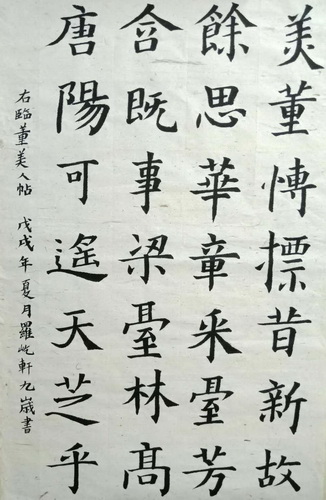 美董愽標昔新故
餘思華章采臺芳
含既事梁臺林髙
唐陽可遙天芝乎
右臨董美人帖 戊戌年夏月羅屹軒九歲書